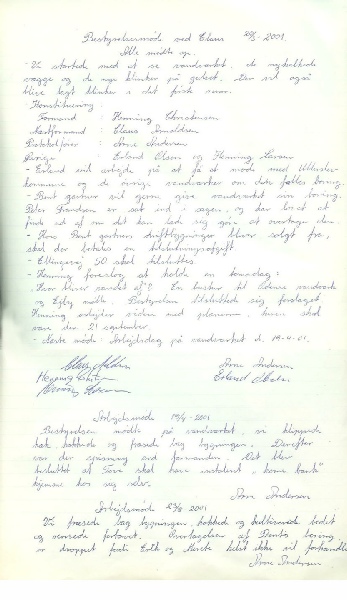 Bestyrelsesmøde ved Claus 28/3-2001.
Alle mødte op.
- Vi startede med at se vandværket, de nykalkede
vægge og de nye klinker på gulvet. Der vil også
blive lagt klinker i det første rum.
Konstituering:
Formand : Henning Christensen
Næstformand : Claus Arnoldsen
Protokolfører : Arne Andersen
Øvrige : Erland Olsen og Henning Larsen
- Erland vil arbejde på at få et møde med Ullerslev
kommune og de øvrige vandværker om den fælles boring.
- Bent gartner vil gerne give vandværket sin boring.
Peter Frandsen er sat ind i sagen, og har lovet at
finde ud af om det kan lade sig gøre at overtage den.
- Hvis Bent gartners driftbygninger bliver solgt fra,
skal der betales en tilslutningsafgift
- Ellingevej 50 skal tilsluttes.
- Henning foreslog at holde en temadag:
"Hvor bliver vandet af"? En bustur til Odense vandværk
og Ejby mølle. Bestyrelsen tilsluttede sig forslaget.
Henning arbejder videre med planerne, turen skal
være den 21 september.
- Næste møde: Arbejdsdag på vandværket d. 19-4-01.
Arne Andersen
Erland Olsen
Arbejdsmøde 19/4-2001
Bestyrelsen mødte på vandværket, vi klippede
hæk, hakkede og fræsede bag bygningen. Derefter
var der spisning ved formanden. Det blev
besluttet at Tove skal have installeret "home bank"
hjemme hos sig selv.
Arne Andersen
Arbejdsmøde 2001
Vi fræsede bag bygningen, hakkede og bedet
og rensede fortovet. Overtagelsen af Bents boring
er droppet fordi Erik og Merete Lolet ikke vil forhandle
Arne Andersen